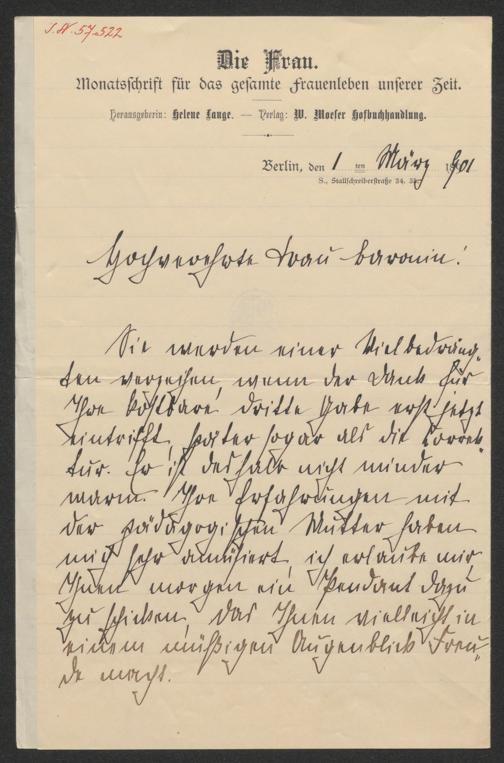 J.N. 57.522
Die Frau.
Monatsschrift für das gesamte Frauenleben unserer Zeit.
Herausgeberin: Helene Lange. — Verlag: W. Moeser Hofbuchhandlung.
Berlin, den 1ten März 1901
S., Stallschreiberstraße 34. 35.
Hochverehrte Frau Baronin!
Sie werden einer Vielbedräng-
ten verzeihen, wenn der Dank für
Ihre kostbare dritte Gabe erst jetzt
eintrifft, später sogar als die Correk-
tur. Er ist deshalb nicht minder
warm. Ihre Erfahrungen mit
der pädagogischen Mutter haben
mich sehr amüsiert, ich erlaube mir
Ihnen morgen ein Pendant dazu
zu schicken, das Ihnen vielleicht in
einem müßigen Augenblick Freu-
de macht.